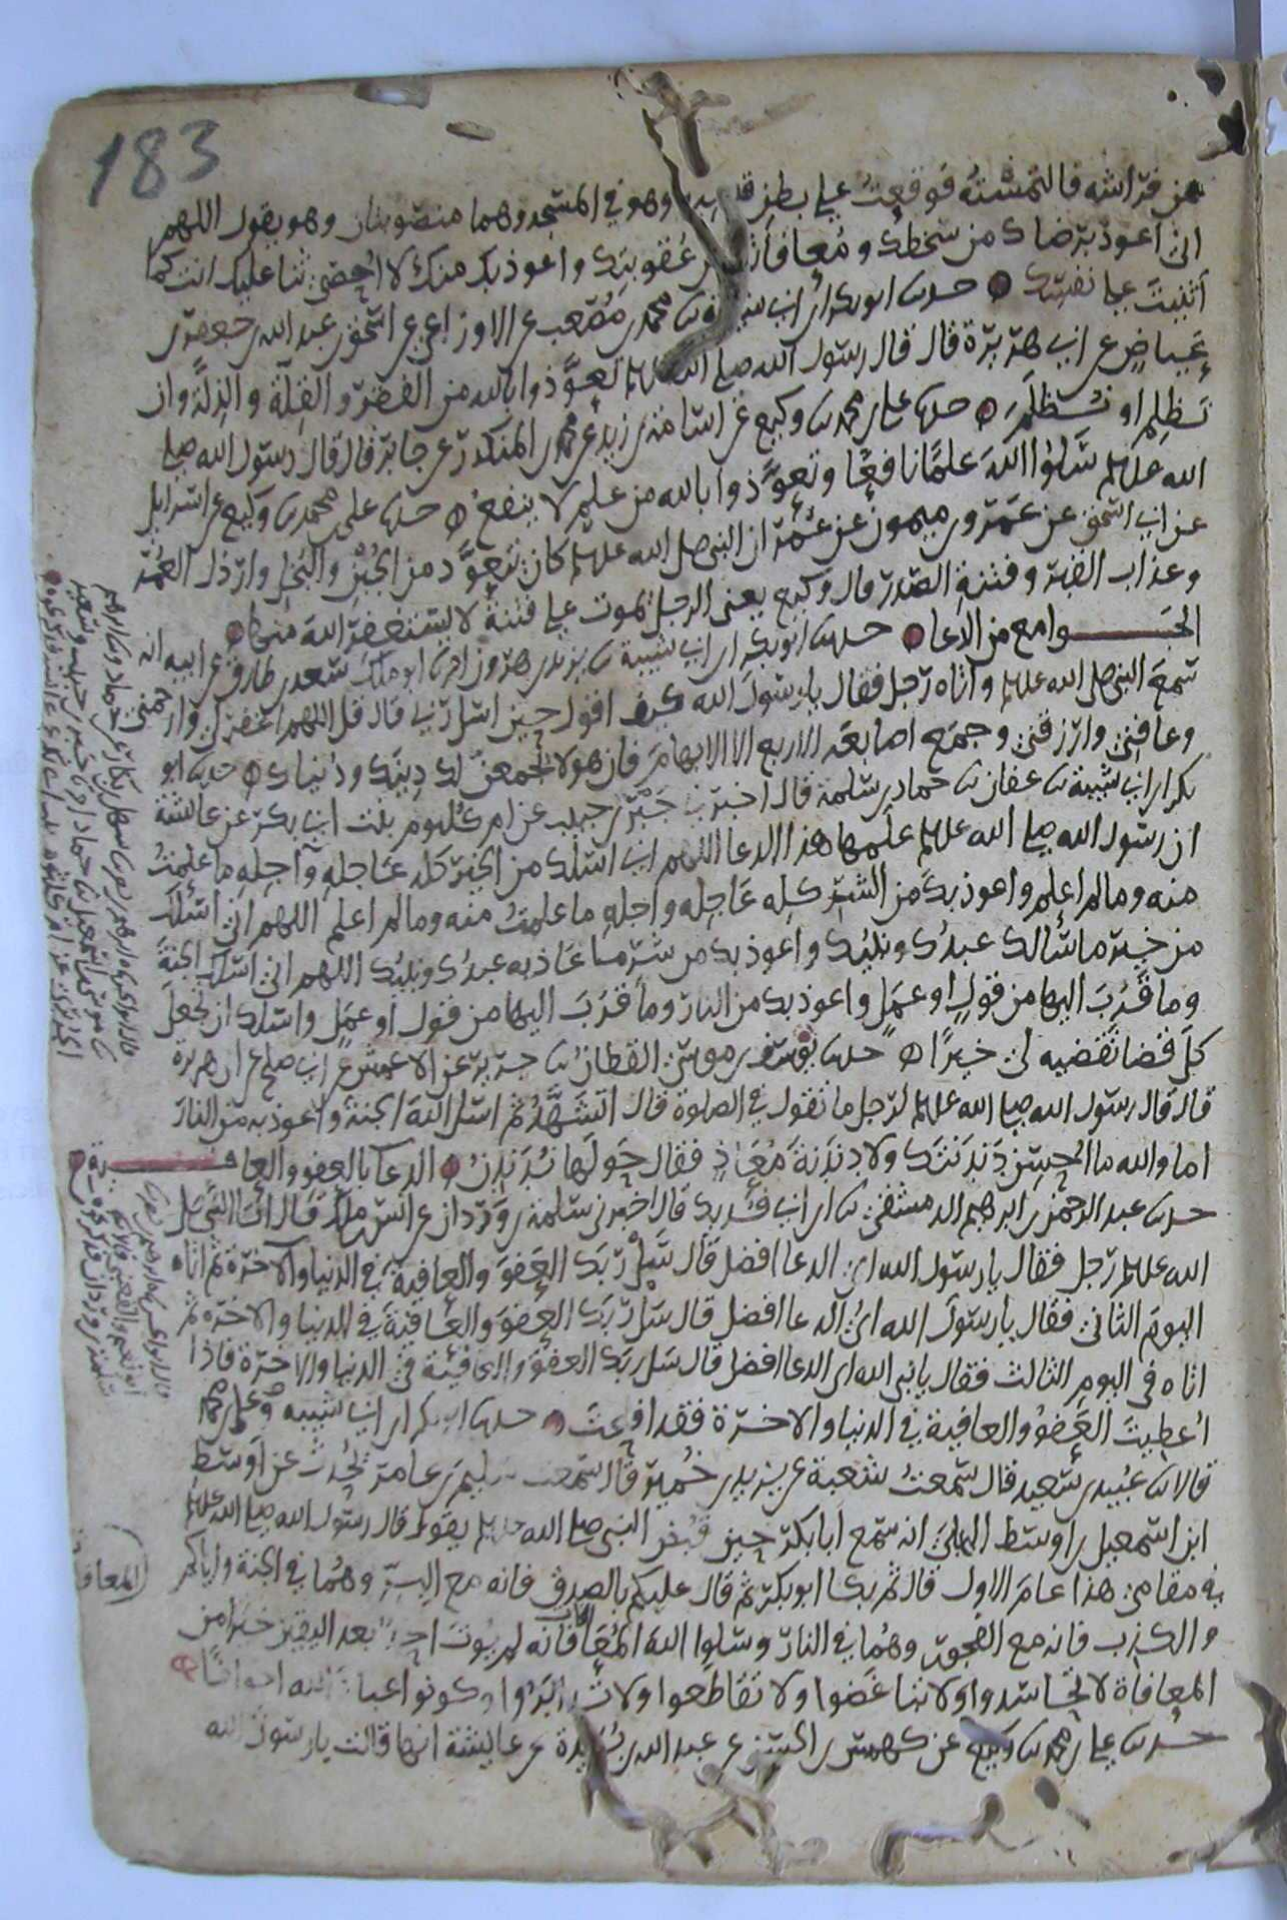 183
من فراشه فالتمسته فوقعت على بطن وهو في المسجد وهما منصوبتان وهو يقول اللهم
اني اعوذ برضاك من سخطك ومعافاتك من عقوبتك واعوذ بك منك لا احصي ثنا عليك انت كما
اثنيت على نفسك حدثنا ابو بكر بن ابي شيبة ثنا محمد بن مصعب عن الاوزاعي عن اسحق بن عبد الله عن جعفر بن
عياض عن ابي هريرة قال قال رسول الله صلى الله عليه وسلم تعوذوا بالله من الفقر والقلة والذلة وان
تظلم او تظلم حدثنا علي بن محمد ثنا وكيع عن اسامة بن زيد عن محمد بن المنكدر عن جابر قال قال رسول الله صلى
الله عليه وسلم سلوا الله علما نافعا وتعوذوا بالله من علم لا ينفع حدثنا علي بن محمد ثنا وكيع عن اسرايل
عن ابي اسحق عن عمرو بن ميمون عن عمر ان النبي صلى الله عليه وسلم كان يتعوذ من الجبن والبخل وارذل العمر
وعذاب القبر وفتنة الصدر قال وكيع يعني الرجل يموت على فتنة لا يستغفر الله منها
الجوامع من الدعا حدثنا ابو بكر بن ابي شيبة ثنا يزيد بن هرون انا ابو ملك سعد بن طارق عن ابيه انه
سمع النبي صلى الله عليه وسلم واتاه رجل فقال يا رسول الله كيف اقول حين اسل ربي قال قل اللهم اغفر لي وارحمني
وعافني وارزقني وجمع اصابعه الاربع الا الابهام فان هولا يجمعن لك دينك ودنياك حدثنا ابو
بكر بن ابي شيبة ثنا عفان ثنا حماد بن سلمة قال اخبرني جبر بن حبيب عن ام كلثوم بنت ابي بكر عن عائشة
ان رسول الله صلى الله عليه وسلم علمها هذا الدعا اللهم اني اسلك من الخير كله عاجله وآجله ما علمت
منه وما لم اعلم واعوذ بك من الشر كله عاجله واجله ما علمت منه وما لم اعلم اللهم اني اسئلك
من خير ما سألك عبدك ونبيك واعوذ بك من شر ما عاذ به عبدك ونبيك اللهم اني اسئلك الجنة
وما قرب اليها من قول او عمل واعوذ بك من النار وما قرب اليها من قول او عمل واسلك ان تجعل
كل قضا تقضيه لي خيرا حدثنا يوسف بن موسى القطان ثنا جرير عن الاعمش عن ابي صلح عن ابي هريرة
قال قال رسول الله صلى الله عليه وسلم لرجل ما تقول في الصلوة قال اتشهد ثم اسل الله الجنة واعوذ به من النار
اما والله ما احسن دندنتك ولا دندنة معاذ فقال حولها ندندن الدعا بالعفو والعافية
حدثنا عبد الرحمن بن ابرهيم الدمشقي ثنا ابن ابي فديك قال اخبرني سلمة بن وردان عن انس بن ملك قال اتا النبي صلى
الله عليه وسلم رجل فقال يا رسول الله اي الدعا افضل قال سل ربك العفو والعافية في الدنيا والآخرة ثم اتاه
اليوم الثاني فقال يا رسول الله اي الدعا افضل قال سل ربك العفو والعافية في الدنيا والاخرة ثم
اتاه في اليوم الثالث فقال يا نبي الله اي الدعا افضل قال سل ربك العفو والعافية في الدنيا والاخرة فاذا
اعطيت العفو والعافية في الدنيا والاخرة فقد افلحت حدثنا ابو بكر بن ابي شيبة وعلي بن محمد
قالا ثنا عبيد بن سعيد قال سمعت شعبة عن يزيد بن خمير قال سمعت سليم بن عامر يحدث عن اوسط
ابن اسمعيل بن اوسط البجلي انه سمع ابا بكر حين قبض النبي صلى الله عليه وسلم يقول قال رسول الله صلى الله عليه وسلم
في مقامي هذا عام الاول قال ثم بكا ابو بكر ثم قال عليكم بالصدق فانه مع البر وهما في الجنة واياكم
والكذب فانه مع الفجور وهما في النار وسلوا الله المعافاة فانه لم يوت احد بعد اليقين خيرا من
المعافاة لا تحاسدوا ولا تباغضوا ولا تقاطعوا ولا تدابروا وكونوا عباد الله اخوانا
حدثنا علي بن محمد ثنا وكيع عن كهمس بن الحسن عن عبد الله بن بريدة عن عايشة انها قالت يا رسول الله
المعافاة